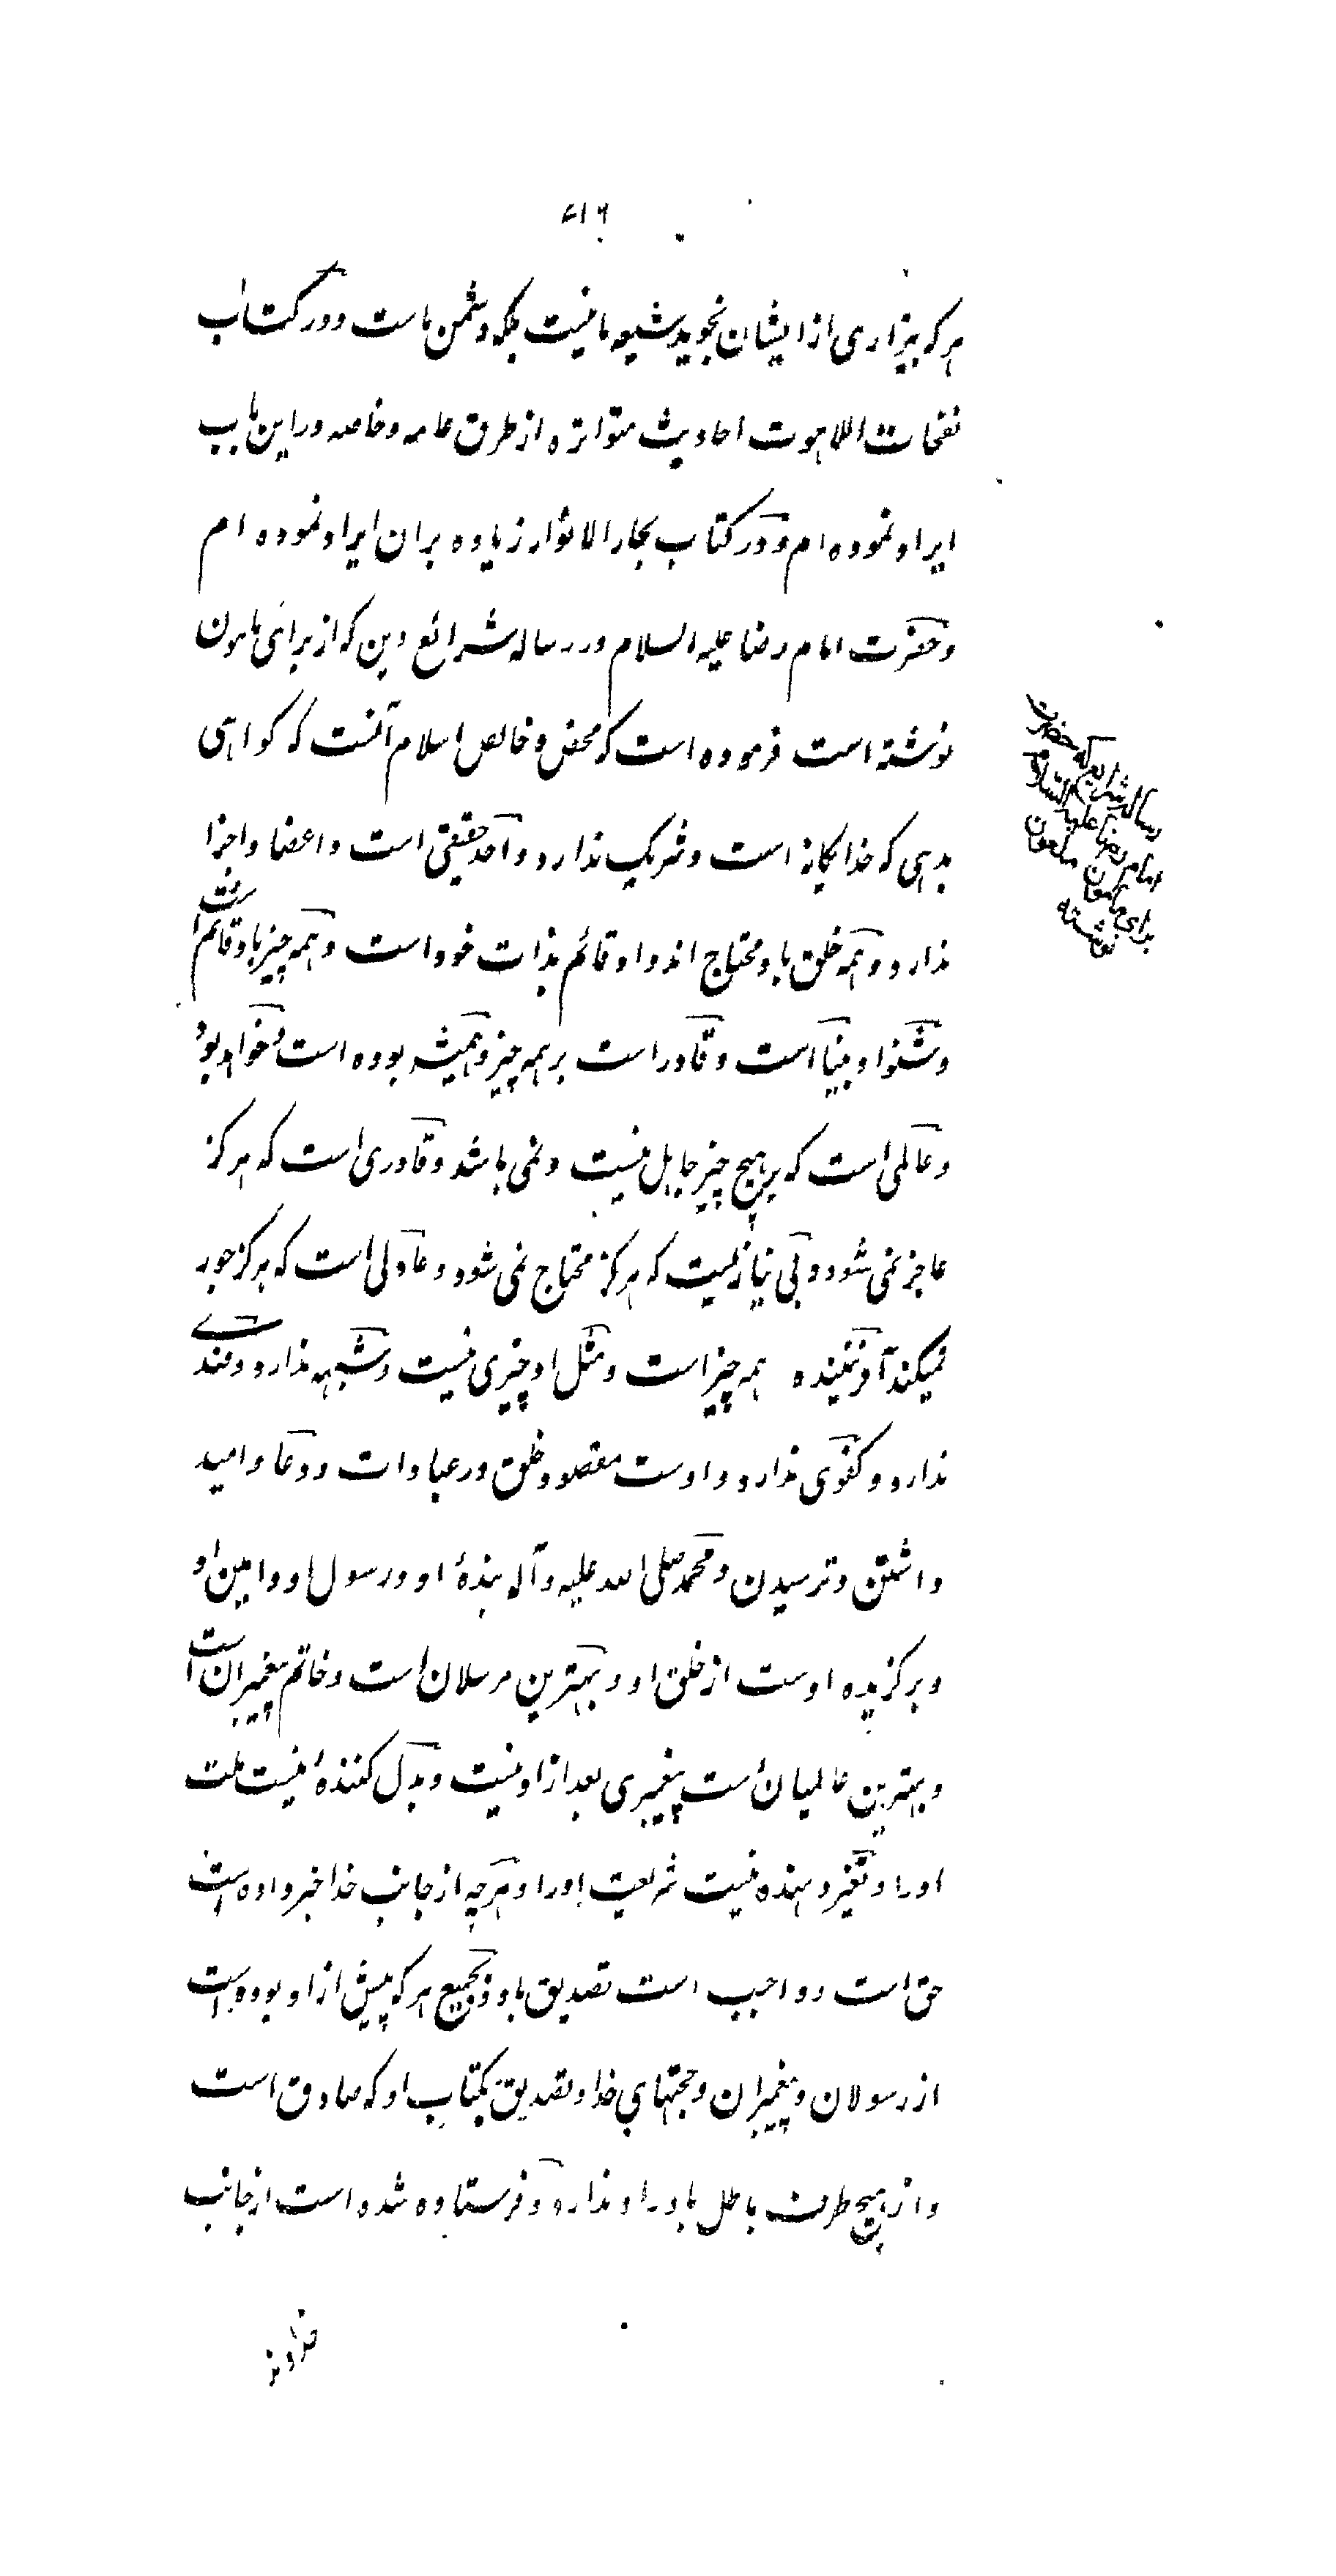 ۶۱۶
هر که بیزاری از ایشان نجوید شیعه ما نیست بلکه دشمن ماست و در کتاب
نفحات اللاهوت احادیث متواتره از طرق عامه و خاصه در این باب
ایراد نموده ام و در کتاب بحار الانوار زیاده بر ان ایراد نموده ام
و حضرت امام رضا علیه السلام در رساله شرائع دین که از برای مامون
نوشته است فرموده است که محض و خالص اسلام آنست که کواهی
بدهی که خدا یکانه است و شریک ندارد و احد حقیقی است و اعضا و اجزا
ندارد و همه خلق باو محتاج اند و او قائم بذات خود است و همه چیز باو قائم است
و شنوا و بینا است و قادر است بر همه چیز و همیشه بوده است و خواهد بود
و عالمی است که بر هیچ چیز جاهل نیست و نمی باشد و قادری است که هرکز
عاجز نمی شود و بی نیازیست که هرکز محتاج نمی شود و عادلی است که هرکز جور
نمیکند آفریننده همه چیز است و مثل او چیزی نیست و شبیه ندارد و ضدی
ندارد و کفوی ندارد و اوست مقصود خلق در عبادات و دعا و امید
داشتن و ترسیدن و محمد صلی الله علیه و آله بندهٔ او و رسول او و امین او
و برکزیده اوست از خلق او و بهترین مرسلان است و خاتم پیغمبران است
و بهترین عالمیان است پیغمبری بعد از او نیست و بدل کنندهٔ نیست ملت
او را و تغیر دهنده نیست شریعت او را و هرچه از جانب خدا خبر داده است
حق است و واجب است تصدیق باو و بجمیع هر که پیش از او بوده است
از رسولان و پیغمبران و حجتهای خدا و تصدیق بکتاب او که صادق است
و از هیچ طرف باطل بادر راه ندارد و فرستاده شده است از جانب
خداوند
رساله شرایع که حضرت
امام رضا علیه السلام
برای مامون ملعون
نوشته